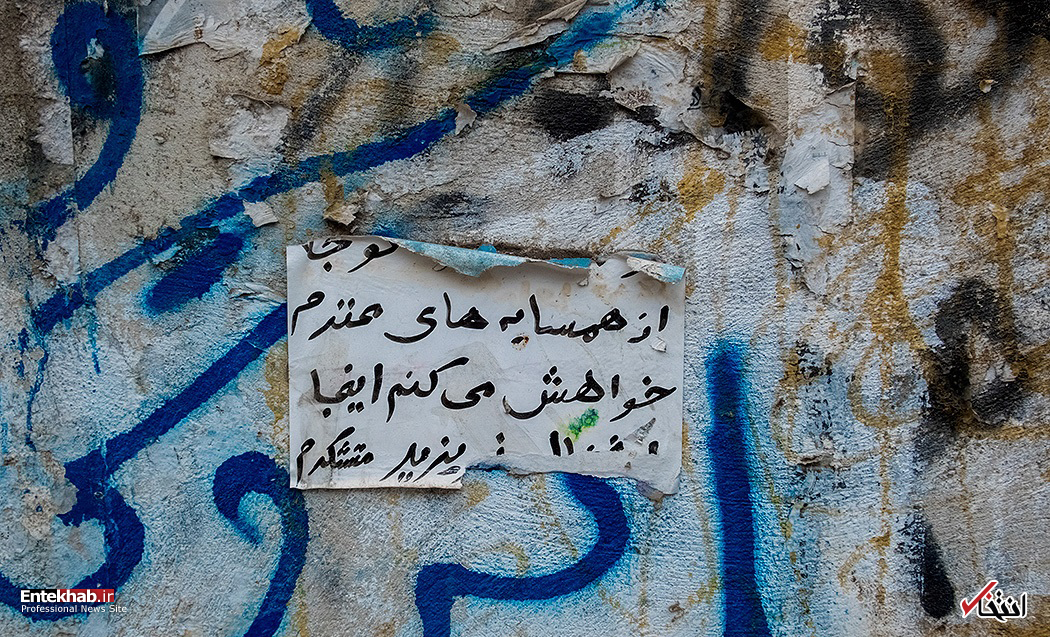 از همسایه های محترم
خواهش می کنم اینجا
آشغال نریزید متشکرم
Entekhab.ir
Professional News Site
انتخاب